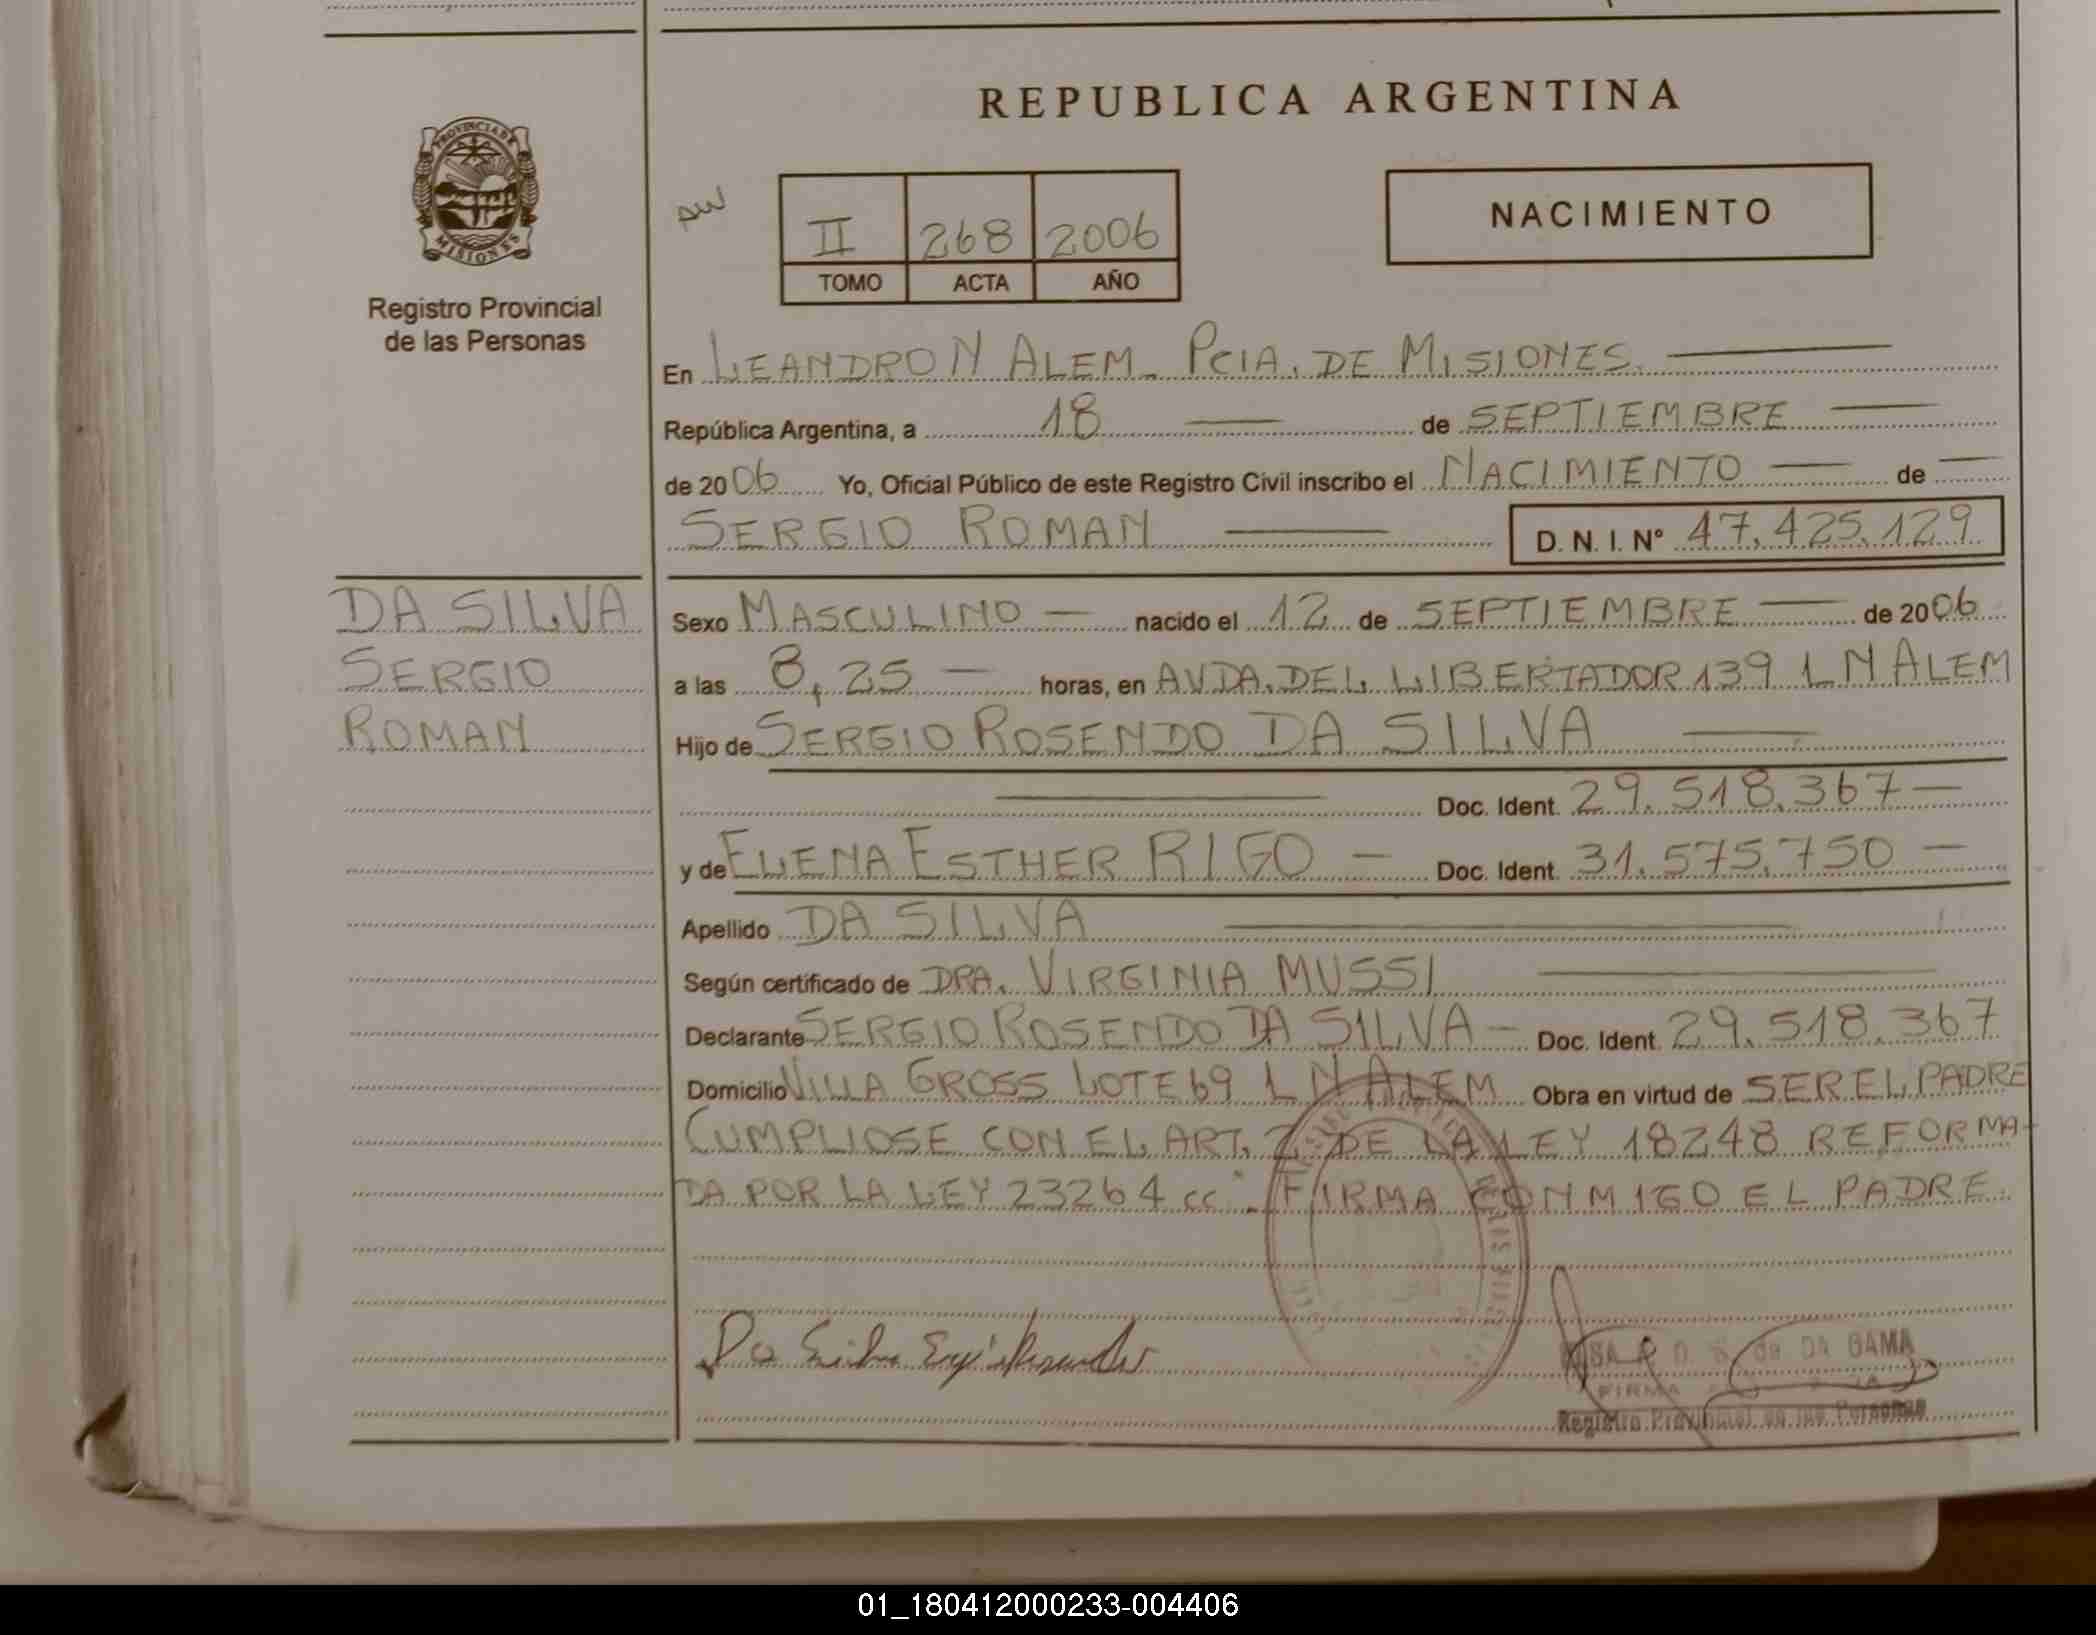 REPUBLICA ARGENTINA
PROVINCIA DE
MISIONES
Registro Provincial
de las Personas
II 268 2006
TOMO ACTA AÑO
NACIMIENTO
En LEANDRO N ALEM_ PCIA. DE MISIONES.
República Argentina, a 18 de SEPTIEMBRE
de 2006 Yo, Oficial Público de este Registro Civil inscribo el NACIMIENTO de
SERGIO ROMAN D. N. I. N° 47.425.129
DA SILVA
SERGIO
ROMAN
Sexo MASCULINO nacido el 12 de SEPTIEMBRE de 2006
a las 8,25 horas, en AVDA. DEL LIBERTADOR 139 L N ALEM
Hijo de SERGIO ROSENDO DA SILVA
Doc. Ident. 29.518.367
y de ELENA ESTHER RIGO Doc. Ident. 31.575.750
Apellido DA SILVA
Según certificado de DRA. VIRGINIA MUSSI
Declarante SERGIO ROSENDO DA SILVA Doc. Ident. 29.518.367
Domicilio VILLA GROSS LOTE 69 L N ALEM Obra en virtud de SER EL PADRE
CUMPLIOSE CON EL ART. 2 DE LA LEY 18248 REFORMA-
DA POR LA LEY 23264 cc. FIRMA CONMIGO EL PADRE.
Da Silva Sergio Rosendo
de DA GAMA
FIRMA
Registro Provincial de las Personas
01_180412000233-004406